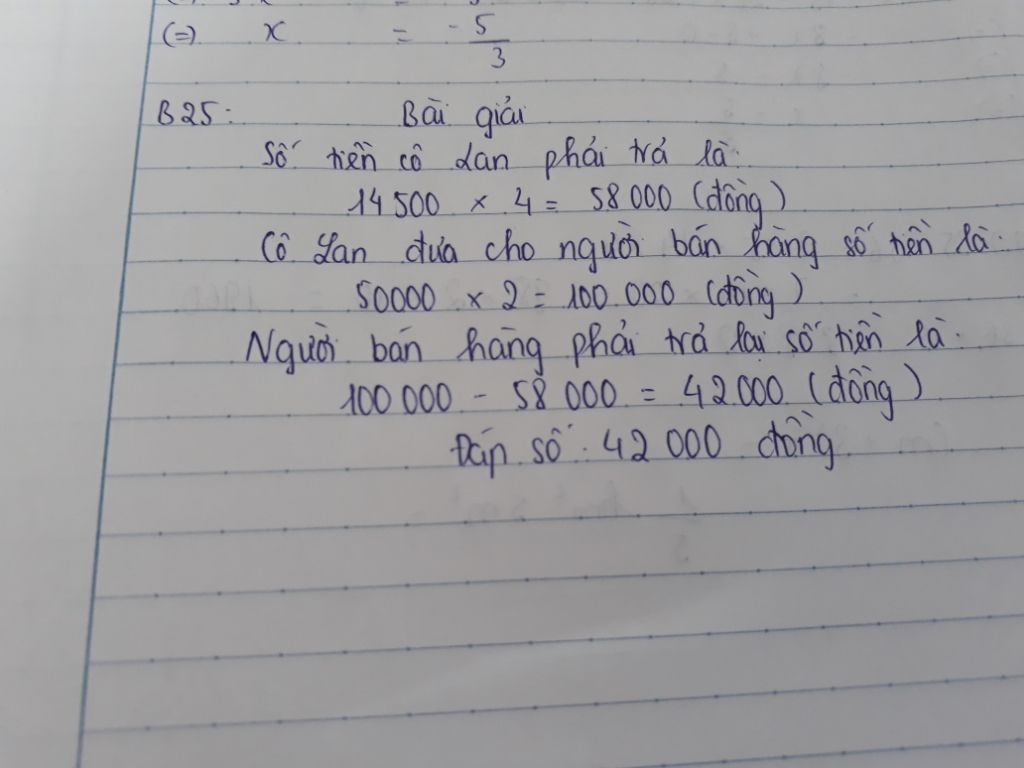 (=) x = - 5/3
B25: Bài giải
Số tiền cô Lan phải trả là:
14 500 x 4 = 58 000 (đồng)
Cô Lan đưa cho người bán hàng số tiền là:
50000 x 2 = 100 000 (đồng)
Người bán hàng phải trả lại số tiền là:
100 000 - 58 000 = 42 000 (đồng)
Đáp số : 42 000 đồng